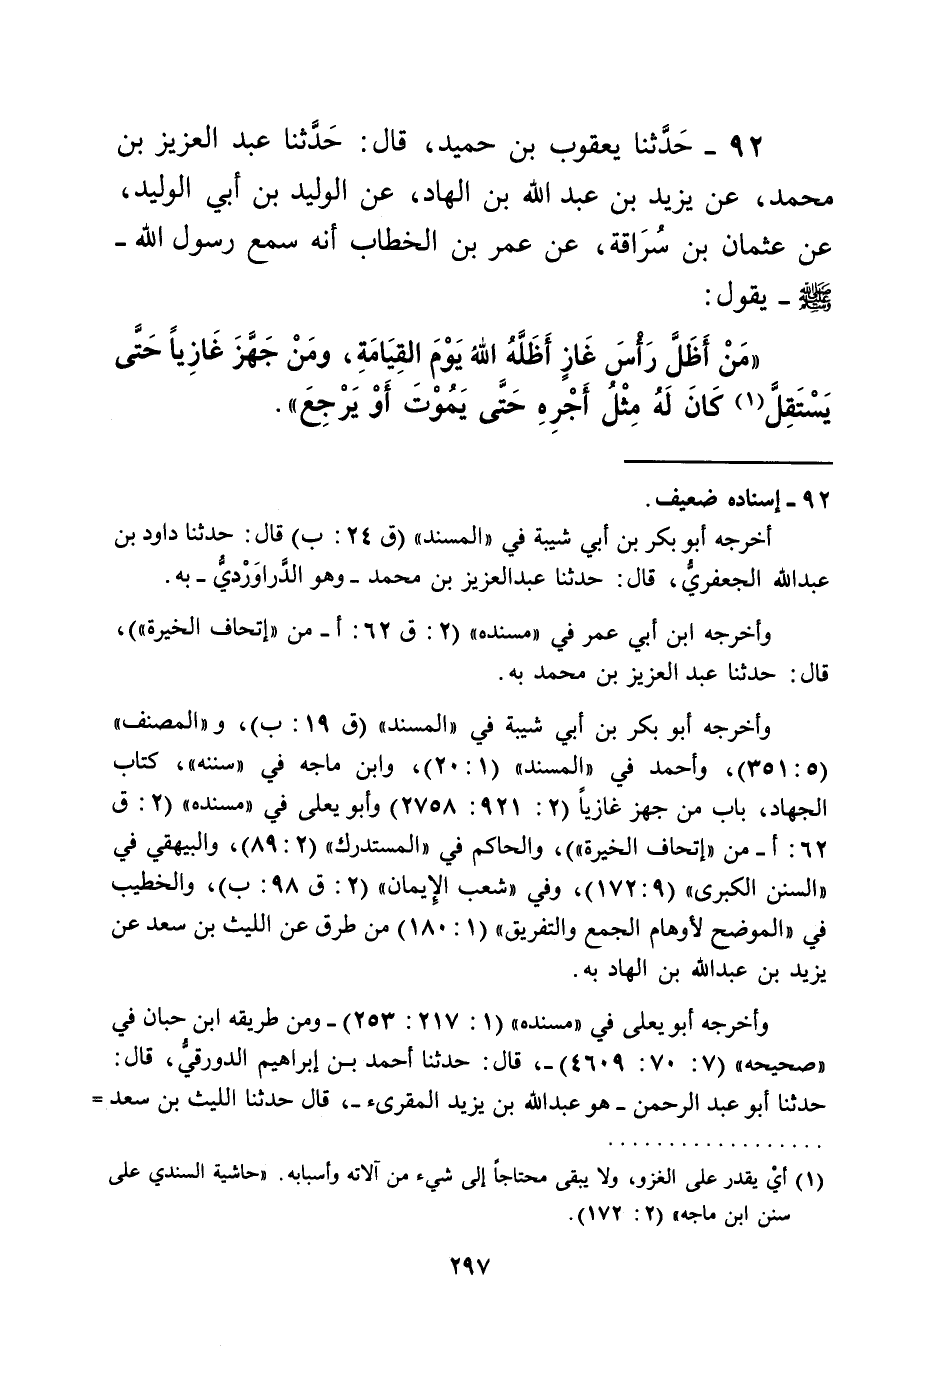 ٩٢ ـ حَدَّثنا يعقوب بن حميد، قال: حَدَّثنا عبد العزيز بن
محمد، عن يزيد بن عبد الله بن الهاد، عن الوليد بن أبي الوليد،
عن عثمان بن سُرَاقة، عن عمر بن الخطاب أنه سمع رسول الله ـ
ﷺ ـ يقول:
«مَنْ أَظَلَّ رَأْسَ غَازٍ أَظَلَّهُ اللهُ يَوْمَ القِيَامَةِ، ومَنْ جَهَّزَ غَازِياً حَتَّى
يَسْتَقِلَّ(١) كَانَ لَهُ مِثْلُ أَجْرِهِ حَتَّى يَمُوْتَ أَوْ يَرْجِعَ».
٩٢ ـ إسناده ضعيف.
أخرجه أبو بكر بن أبي شيبة في «المسند» (ق ٢٤: ب) قال: حدثنا داود بن
عبدالله الجعفريُّ، قال: حدثنا عبدالعزيز بن محمد ـ وهو الدَّراوَرْديُّ ـ به.
وأخرجه ابن أبي عمر في «مسنده» (٢: ق ٦٢: أ ـ من «إتحاف الخيرة»)،
قال: حدثنا عبد العزيز بن محمد به.
وأخرجه أبو بكر بن أبي شيبة في «المسند» (ق ١٩: ب)، و«المصنف»
(٥: ٣٥١)، وأحمد في «المسند» (١: ٢٠)، وابن ماجه في «سننه»، كتاب
الجهاد، باب من جهز غازياً (٢: ٩٢١: ٢٧٥٨) وأبو يعلى في «مسنده» (٢: ق
٦٢: أ ـ من «إتحاف الخيرة»)، والحاكم في «المستدرك» (٢: ٨٩)، والبيهقي في
«السنن الكبرى» (٩: ١٧٢)، وفي «شعب الإيمان» (٢: ق ٩٨: ب)، والخطيب
في «الموضح لأوهام الجمع والتفريق» (١: ١٨٠) من طرق عن الليث بن سعد عن
يزيد بن عبدالله بن الهاد به.
وأخرجه أبو يعلى في «مسنده» (١: ٢١٧: ٢٥٣) ـ ومن طريقه ابن حبان في
«صحيحه» (٧: ٧٠: ٤٦٠٩) ـ، قال: حدثنا أحمد بن إبراهيم الدورقيُّ، قال:
حدثنا أبو عبد الرحمن ـ هو عبدالله بن يزيد المقرىء ـ، قال حدثنا الليث بن سعد =
(١) أيْ يقدر على الغزو، ولا يبقى محتاجاً إلى شيء من آلاته وأسبابه. «حاشية السندي على
سنن ابن ماجه» (٢: ١٧٢).
٢٩٧